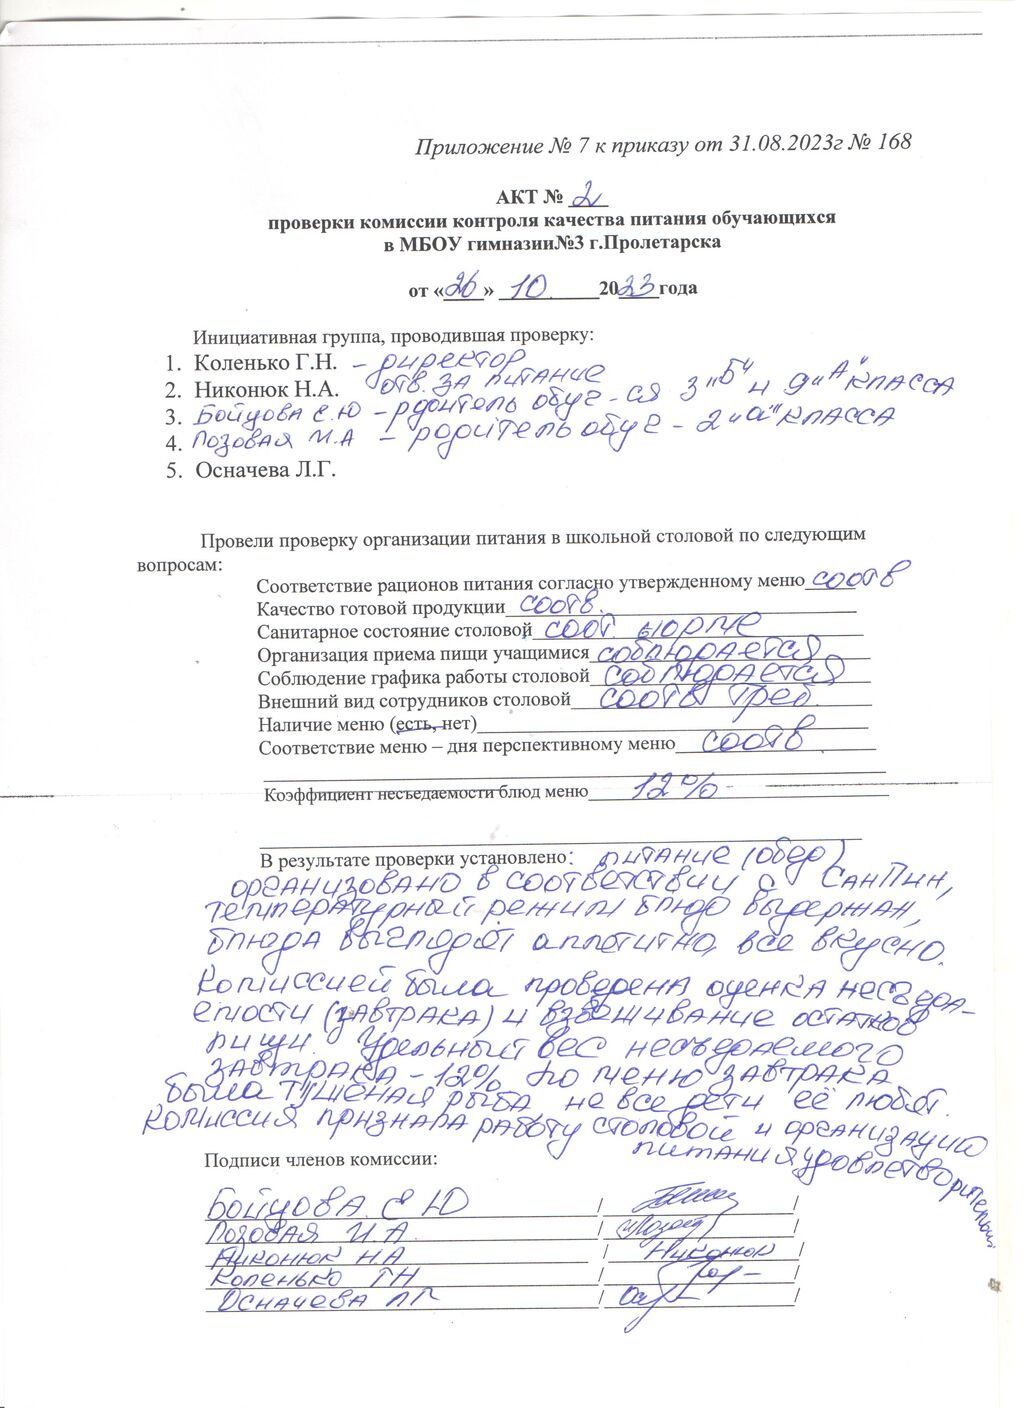 Приложение № 7 к приказу от 31.08.2023г № 168
АКТ № 2
проверки комиссии контроля качества питания обучающихся
в МБОУ гимназии№3 г.Пролетарска
от «26» 10 2023 года
Инициативная группа, проводившая проверку:
1. Коленько Г.Н. – директор
2. Никонюк Н.А. отв. за питание
3. Бойцова Е.Ю – родитель обуч-ся 3 "Б" и 9 "А" класса
4. Лозовая И.А – родитель обуч – 2 "а" класса
5. Осначева Л.Г.
Провели проверку организации питания в школьной столовой по следующим
вопросам:
Соответствие рационов питания согласно утвержденному меню соотв
Качество готовой продукции соотв.
Санитарное состояние столовой соот. норме
Организация приема пищи учащимися соблюдается
Соблюдение графика работы столовой соблюдается
Внешний вид сотрудников столовой соотв треб.
Наличие меню (есть, нет)
Соответствие меню – дня перспективному меню соотв
Коэффициент несъедаемости блюд меню 12% -
В результате проверки установлено: питание (обед)
организовано в соответствии с СанПин,
температурный режим блюд выдержан,
блюда выглядят аппетитно, все вкусно.
Комиссией была проверена оценка несъеда-
емости (завтрака) и взвешивание остатков
пищи. Удельный вес несъедаемого
завтрака – 12% по меню завтрака
была тушеная рыба не все дети её любят.
Комиссия признала работу столовой и организацию
питания удовлетворительной
Подписи членов комиссии:
Бойцова Е Ю / /
Лозовая И.А / /
Никонюк НА / Никонюк /
Коленько ГН / /
Осначева ЛГ / /